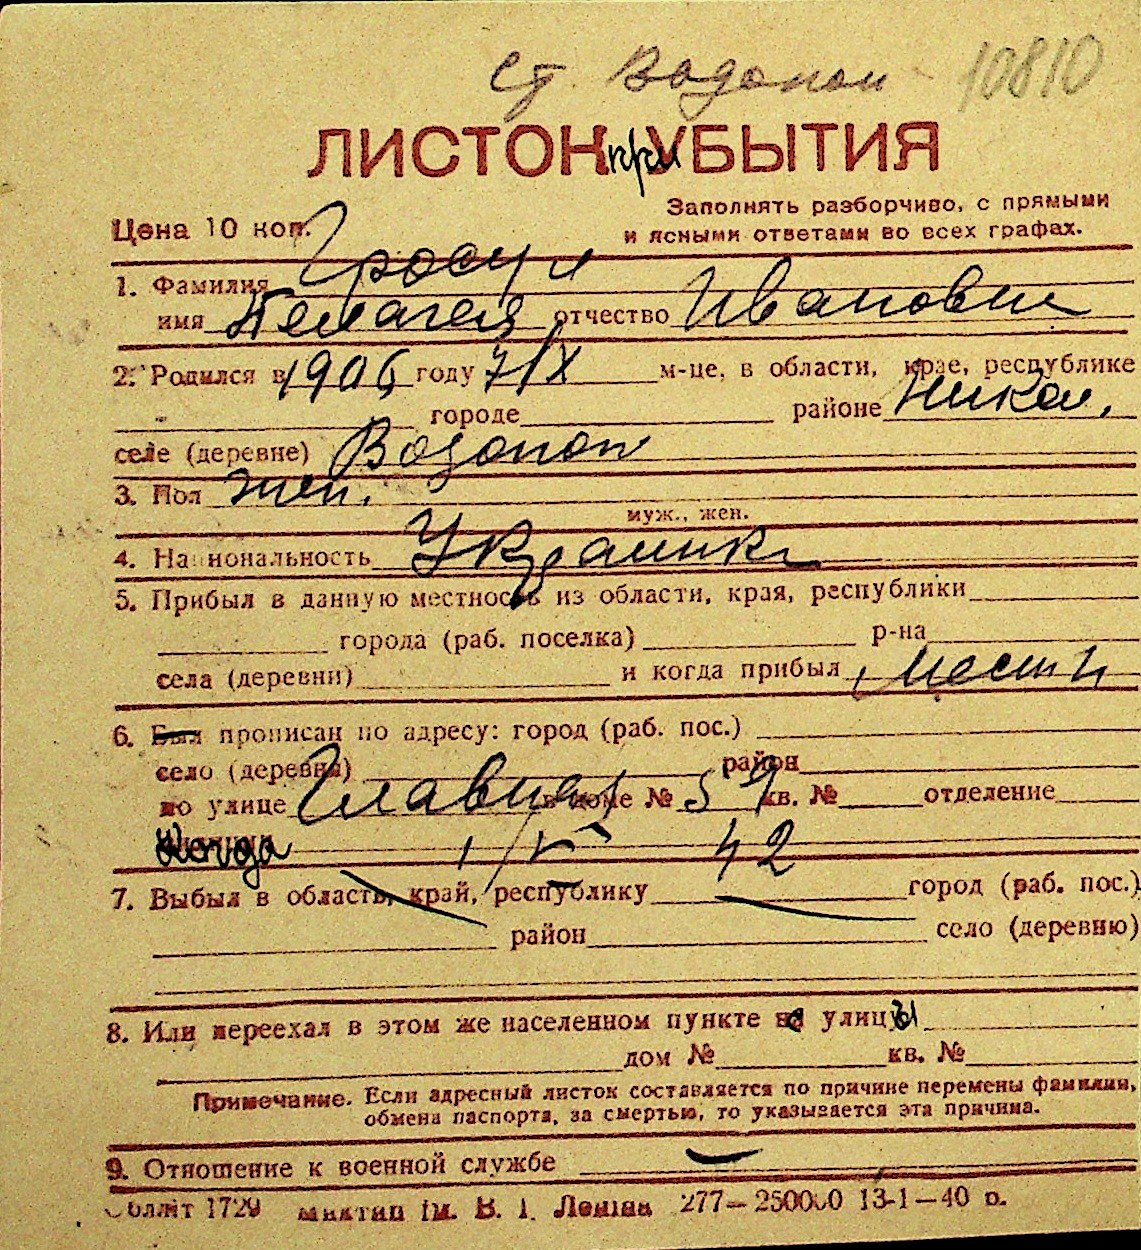 ст. Водопой 10810
ЛИСТОК при УБЫТИЯ
Цена 10 коп.
Заполнять разборчиво, с прямыми
и ясными ответами во всех графах.
1. Фамилия Гросул
имя Пелагея отчество Ивановна
2. Родился в 1906 году 7/X м-це, в области, крае, республике
городе районе Никол.
селе (деревне) Водопой
3. Пол жен.
муж., жен.
4. Национальность Украинка
5. Прибыл в данную местность из области, края, республики
города (раб. поселка) р-на
села (деревни) и когда прибыл
6. Был прописан по адресу: город (раб. пос.)
село (деревня) район
по улице Главная в доме № 59 кв. № отделение
Когда 1/V 42
7. Выбыл в область, край, республику город (раб. пос.)
район село (деревню)
8. Или переехал в этом же населенном пункте с улицы
дом № кв. №
Примечание. Если адресный листок составляется по причине перемены фамилии,
обмена паспорта, за смертью, то указывается эта причина.
9. Отношение к военной службе —
1729 ім. В. І. Леніна 277—250000 13-1—40 р.